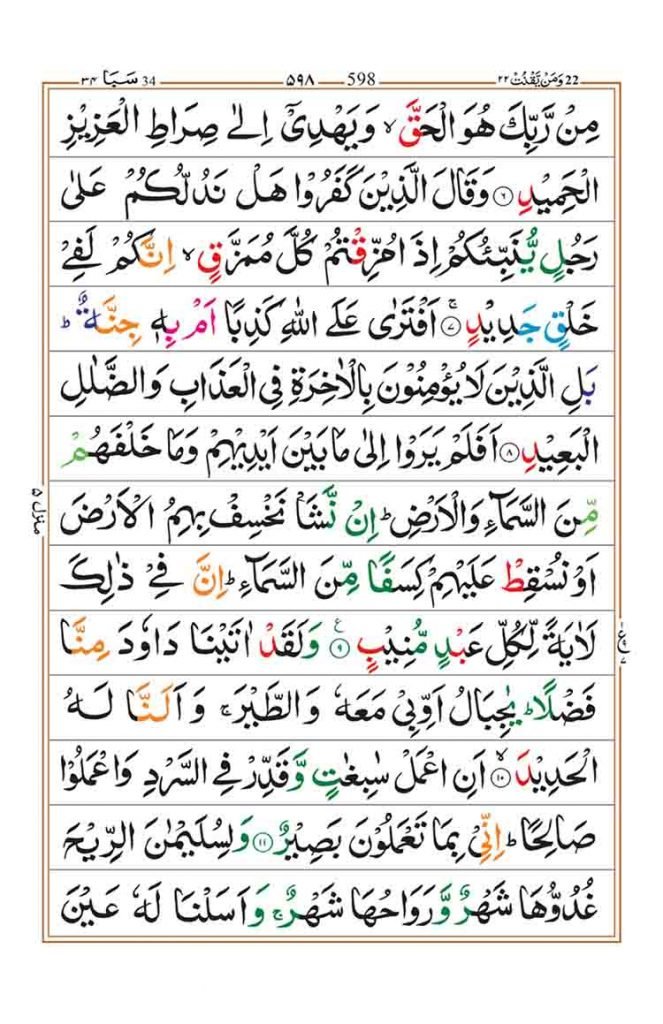 سَبَا 34 ٣٤ ٥٩٨ 598 وَمَنْ يَّقْنُتْ 22 ٢٢
مِنْ رَّبِّكَ هُوَ الْحَقَّ ۙ وَيَهْدِيْۤ اِلٰى صِرَاطِ الْعَزِيْزِ
الْحَمِيْدِ ۝٦ وَقَالَ الَّذِيْنَ كَفَرُوْا هَلْ نَدُلُّكُمْ عَلٰى
رَجُلٍ يُّنَبِّئُكُمْ اِذَا مُزِّقْتُمْ كُلَّ مُمَزَّقٍ ۙ اِنَّكُمْ لَفِيْ
خَلْقٍ جَدِيْدٍ ۝٧ۚ اَفْتَرٰى عَلَى اللّٰهِ كَذِبًا اَمْ بِهٖ جِنَّةٌ ؕ
بَلِ الَّذِيْنَ لَا يُؤْمِنُوْنَ بِالْاٰخِرَةِ فِي الْعَذَابِ وَالضَّلٰلِ
الْبَعِيْدِ ۝٨ اَفَلَمْ يَرَوْا اِلٰى مَا بَيْنَ اَيْدِيْهِمْ وَمَا خَلْفَهُمْ
مِّنَ السَّمَآءِ وَالْاَرْضِ ؕ اِنْ نَّشَاْ نَخْسِفْ بِهِمُ الْاَرْضَ
اَوْ نُسْقِطْ عَلَيْهِمْ كِسَفًا مِّنَ السَّمَآءِ ؕ اِنَّ فِيْ ذٰلِكَ
لَاٰيَةً لِّكُلِّ عَبْدٍ مُّنِيْبٍ ۝٩ۧ وَلَقَدْ اٰتَيْنَا دَاوٗدَ مِنَّا
فَضْلًا ؕ يٰجِبَالُ اَوِّبِيْ مَعَهٗ وَالطَّيْرَ ۚ وَاَلَنَّا لَهُ
الْحَدِيْدَ ۝١٠ۙ اَنِ اعْمَلْ سٰبِغٰتٍ وَّقَدِّرْ فِي السَّرْدِ وَاعْمَلُوْا
صَالِحًا ؕ اِنِّيْ بِمَا تَعْمَلُوْنَ بَصِيْرٌ ۝١١ وَلِسُلَيْمٰنَ الرِّيْحَ
غُدُوُّهَا شَهْرٌ وَّرَوَاحُهَا شَهْرٌ ۚ وَاَسَلْنَا لَهٗ عَيْنَ
منزل ٥